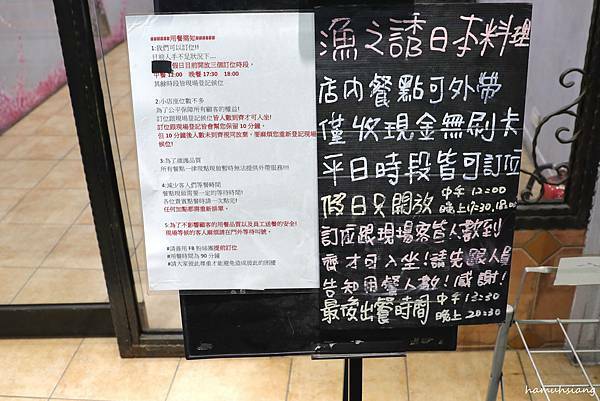 ######用餐需知######
1:我們可以訂位!!
目前人手不足狀況下...
假日目前開放三個訂位時段。
中餐 12:00 晚餐 17:30 18:00
其餘時段皆現場登記候位
2:小店座位數不多
為了公平保障所有顧客的權益!
訂位跟現場登記皆人數到齊才可入坐!
訂位跟現場登記皆會幫您保留 10 分鐘,
但 10 分鐘後人數未到齊視同放棄。要麻煩您重新登記現場
候位!
3:為了維護品質
所有餐點一律現點現做暫時無法提供外帶服務!!!
4:減少客人們等餐時間
餐點現做需要一定的等待時間!
各位貴賓點餐時請一次點完!
任何加點都需重新排單。
5:為了不影響顧客的用餐品質以及員工送餐的安全!
現場等候的客人麻煩請在門外等待叫號。
#請善用 FB 粉絲團提前訂位
#用餐時間為 90 分鐘
#請大家彼此尊重才能避免造成彼此的困擾
漁之誘日本料理
店內餐點可外帶
僅收現金無刷卡
平日時段皆可訂位
假日只開放 中午 12:00
晚上 17:30, 18:00
訂位跟現場客人數到
齊才可入坐!請先跟人員
告知用餐人數!感謝!
最後出餐時間 中午 13:30
晚上 20:30
hamuhsiang